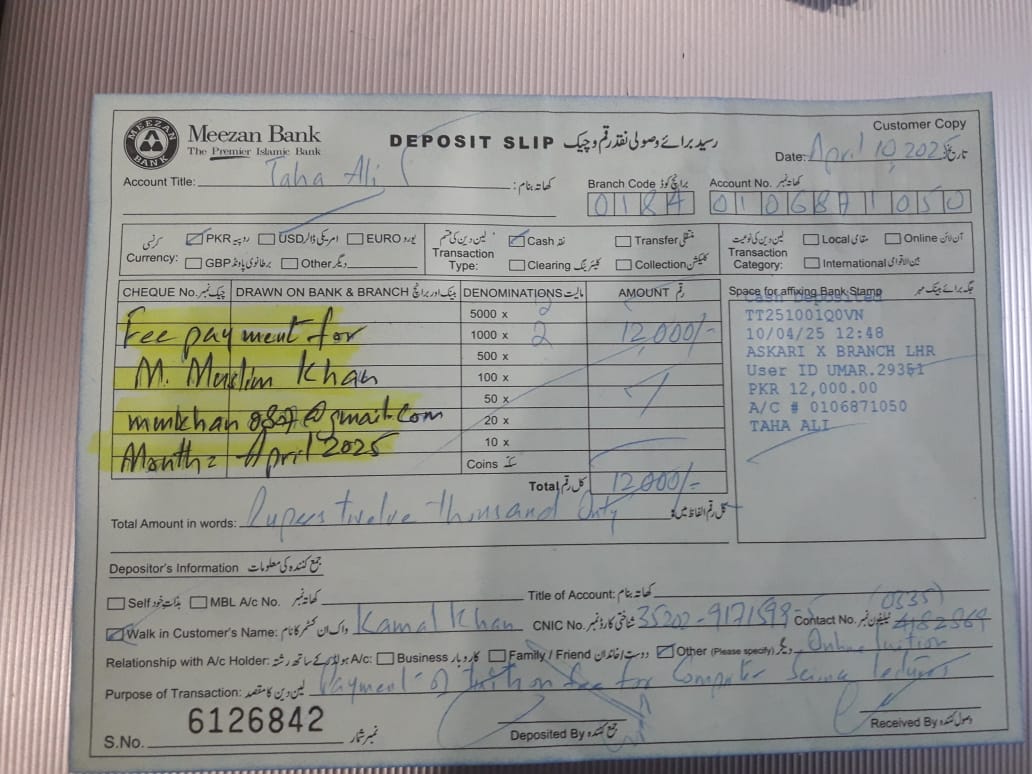 MEEZAN BANK
Meezan Bank
The Premier Islamic Bank
DEPOSIT SLIP رسید برائے وصولی نقد رقم و چیک
Customer Copy
Date: April 10, 2025 تاریخ
Account Title: Taha Ali کھاتہ بنام:
Branch Code برانچ کوڈ Account No. کھاتہ نمبر
0184 0106871050
کرنسی
Currency:
PKR روپیہ USD امریکی ڈالر EURO یورو
GBP برطانوی پاؤنڈ Other دیگر
لین دین کی قسم
Transaction Type:
Cash نقد Transfer منتقلی
Clearing کلیئرنگ Collection کلیکشن
لین دین کی نوعیت
Transaction Category:
Local مقامی Online آن لائن
International بین الاقوامی
CHEQUE No. چیک نمبر DRAWN ON BANK & BRANCH بینک اور برانچ DENOMINATIONS مالیت AMOUNT رقم
5000 x 2
1000 x 2 12,000/-
500 x
100 x
50 x
20 x
10 x
Coins سکے
Fee payment for
M. Muslim Khan
@gmail.com
Month: April 2025
Total کل رقم 12,000/-
Space for affixing Bank Stamp جگہ برائے بینک مہر
Cash Deposited
TT251001Q0VN
10/04/25 12:48
ASKARI X BRANCH LHR
User ID UMAR.29351
PKR 12,000.00
A/C # 0106871050
TAHA ALI
Total Amount in words: Rupees twelve thousand Only کل رقم الفاظ میں
Depositor's Information جمع کنندہ کی معلومات
Self بذات خود MBL A/c No. کھاتہ نمبر Title of Account: کھاتہ بنام
Walk in Customer's Name: واک ان کسٹمر کا نام: Kamal Khan CNIC No. شناختی کارڈ نمبر 35202- Contact No. ٹیلیفون نمبر (0335)
Relationship with A/c Holder: A/c: Business کاروبار Family / Friend دوست/خاندان Other (Please specify) دیگر Online Tuition
Purpose of Transaction: لین دین کا مقصد: Payment of Tuition fee for Computer Science lectures
S.No. 6126842 نمبر شمار
Deposited By جمع کنندہ
Received By وصول کنندہ